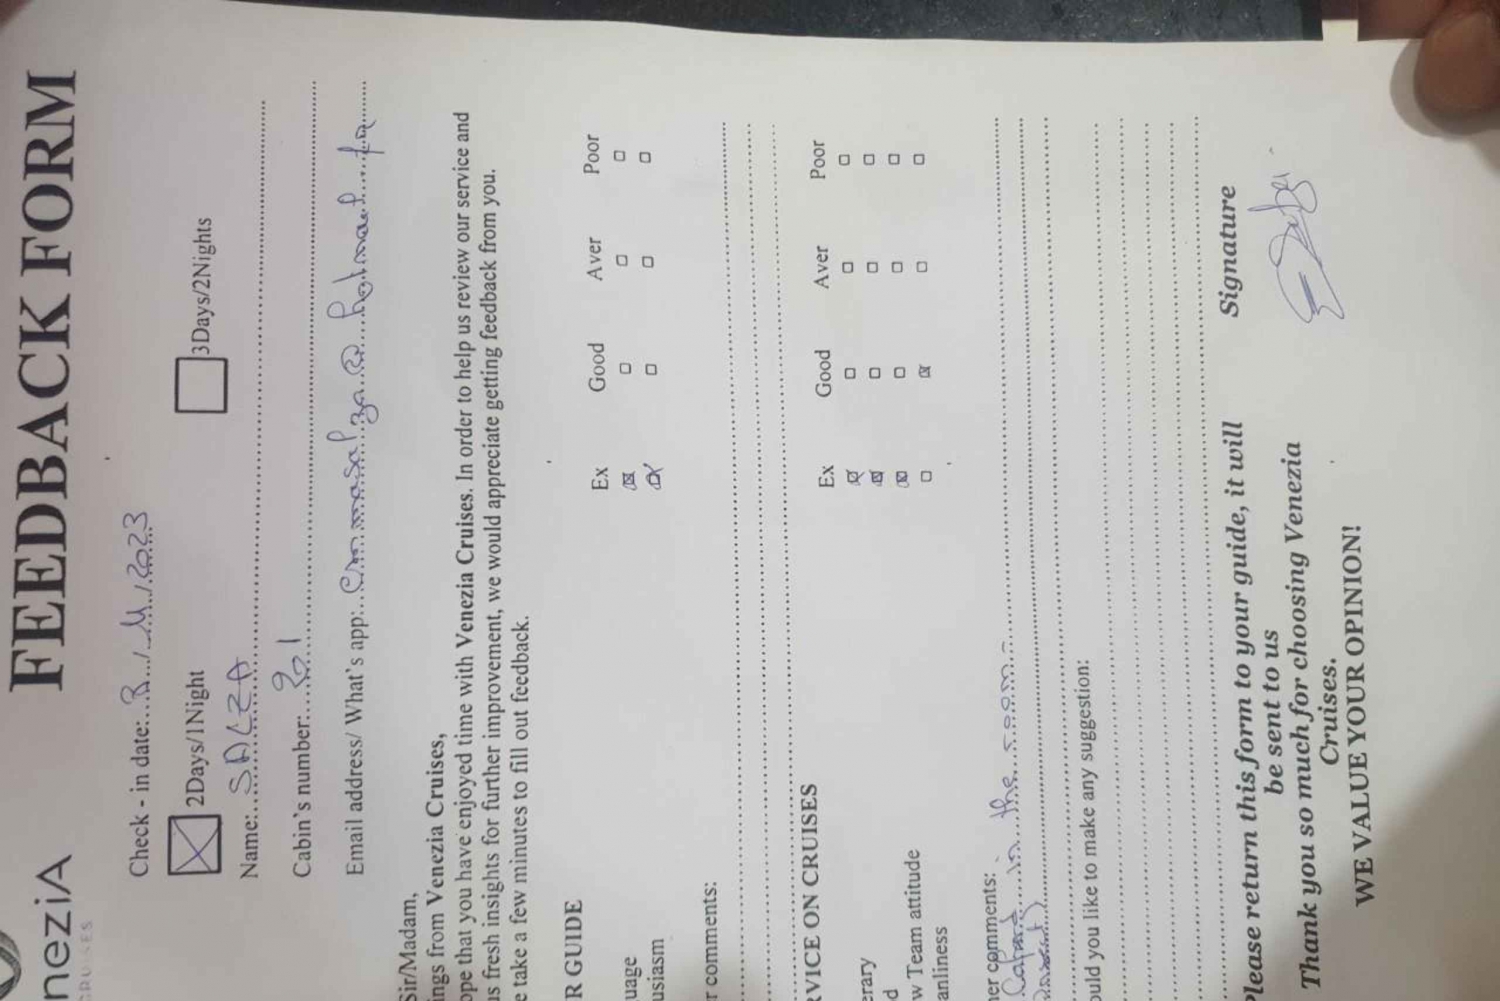 nezia
CRUISES
FEEDBACK FORM
Check - in date: 8 / 11 / 2023
2Days/1Night 3Days/2Nights
Name: SALZA
Cabin's number: 201
Email address/ What's app: emmasalza@hotmail.fr
Sir/Madam,
ings from Venezia Cruises,
ope that you have enjoyed time with Venezia Cruises. In order to help us review our service and
us fresh insights for further improvement, we would appreciate getting feedback from you.
e take a few minutes to fill out feedback.
R GUIDE Ex Good Aver Poor
uage
usiasm
r comments:
RVICE ON CRUISES Ex Good Aver Poor
erary
d
w Team attitude
anliness
her comments:
in the room
ould you like to make any suggestion:
Please return this form to your guide, it will
be sent to us
Signature
Thank you so much for choosing Venezia
Cruises.
WE VALUE YOUR OPINION!